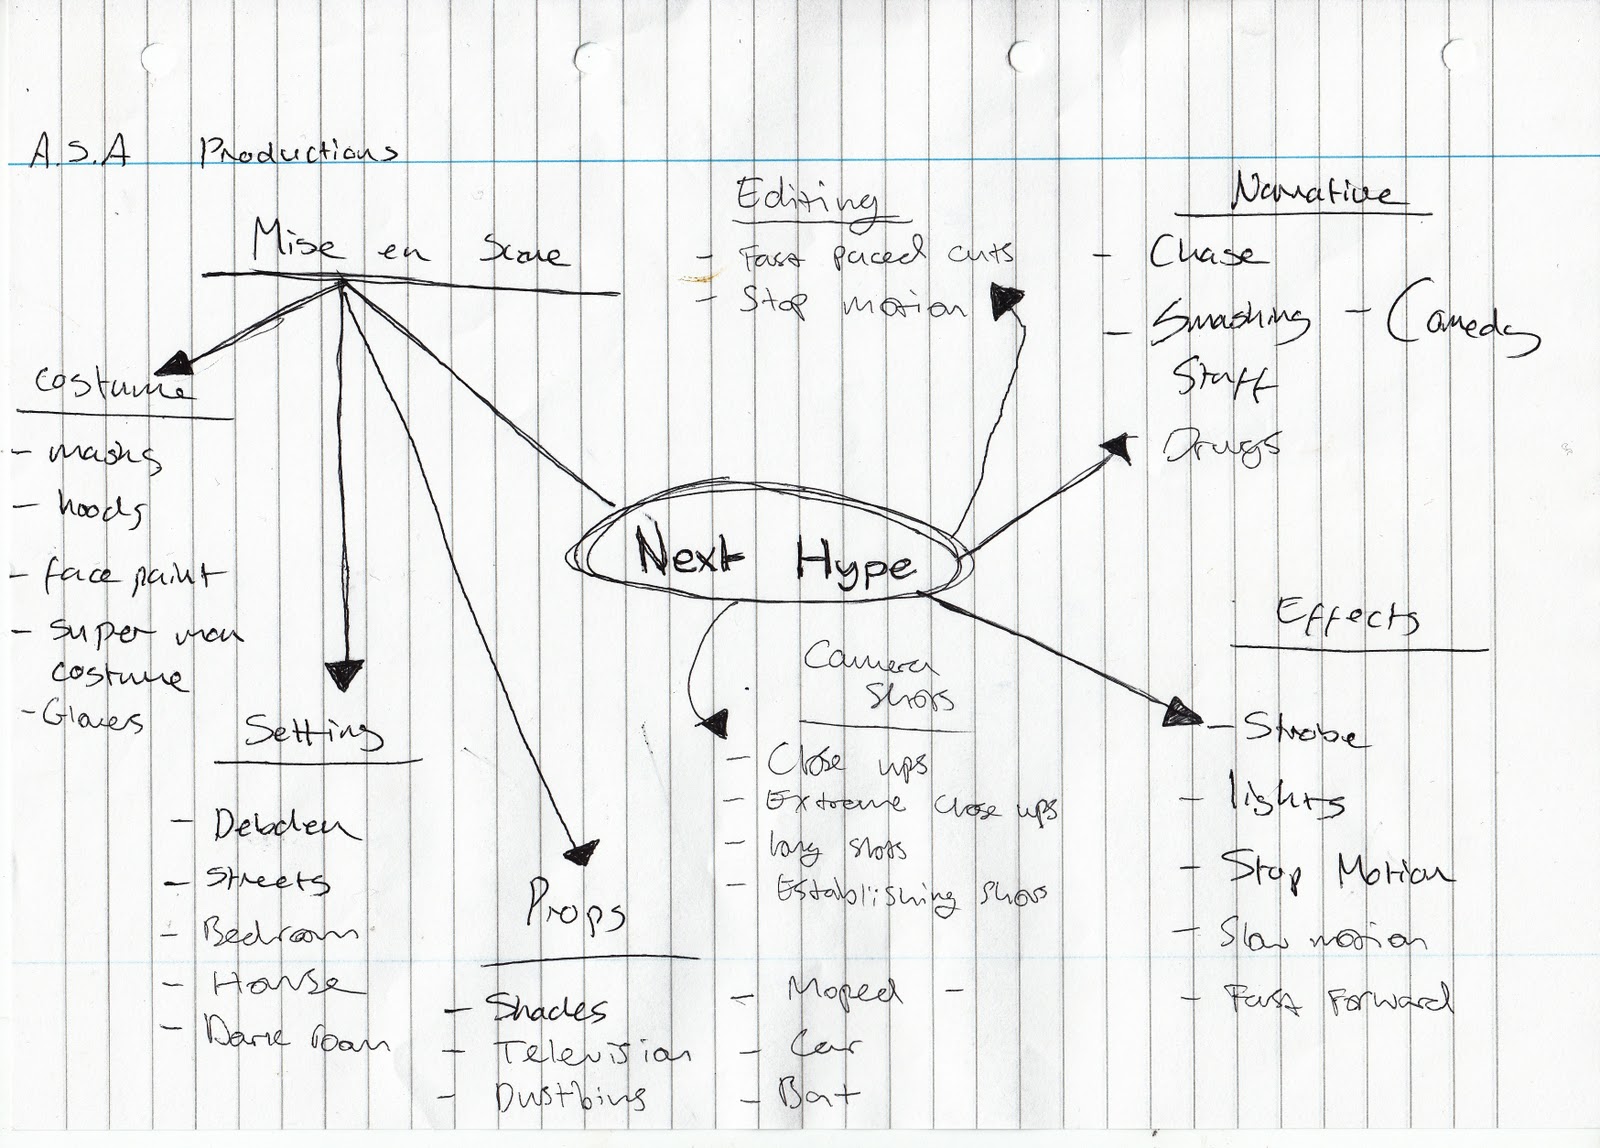 A.S.A Productions
Mise en Scene
Costume
- masks
- hoods
- face paint
- super man
costume
- Gloves
Setting
- Debden
- Streets
- Bedroom
- House
- Dark room
Props
- Shades
- Television
- Dustbins
- Moped -
- Car
- Bat
Next Hype
Editing
- Fast paced cuts
- Stop motion
Camera
Shots
- Close ups
- Extreme close ups
- long shots
- Establishing shots
Narrative
- Chase
- Smashing - Comedy
Stuff
Drugs
Effects
- Strobe
- lights
- Stop Motion
- Slow motion
- Fast Forward